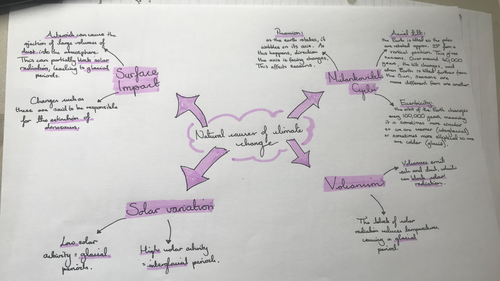 Asteroids can cause the
ejection of large volumes of
dust into the atmosphere.
This can partially block solar
radiation, leading to glacial
periods.
Surface
Impact
Changes such as
these are said to be responsible
for the extinction of
dinosaurs.
Precession:
as the earth rotates, it
wobbles on its axis. As
this happens, direction
the axis is facing changes.
This affects seasons.
Milankovitch
Cycles
Axial tilt:
the Earth is tilted as the poles
are rotated approx. 23° from a
vertical position. This gives
seasons. Over around 40,000
years, the tilt changes, and
when Earth is tilted further from
the Sun, seasons are
more different from one another
Eccentricity:
the orbit of the Earth changes
every 100,000 years, meaning
it is sometimes more circular
so we are warmer (interglacial)
or sometimes more elliptical so we
are colder (glacial)
Natural causes of climate
change
Solar variation
Low solar
activity = glacial
periods.
High solar activity
= interglacial periods.
Volcanism
Volcanoes emit
ash and dust, which
can block solar
radiation.
The block of solar
radiation reduces temperatures,
causing a glacial
period.